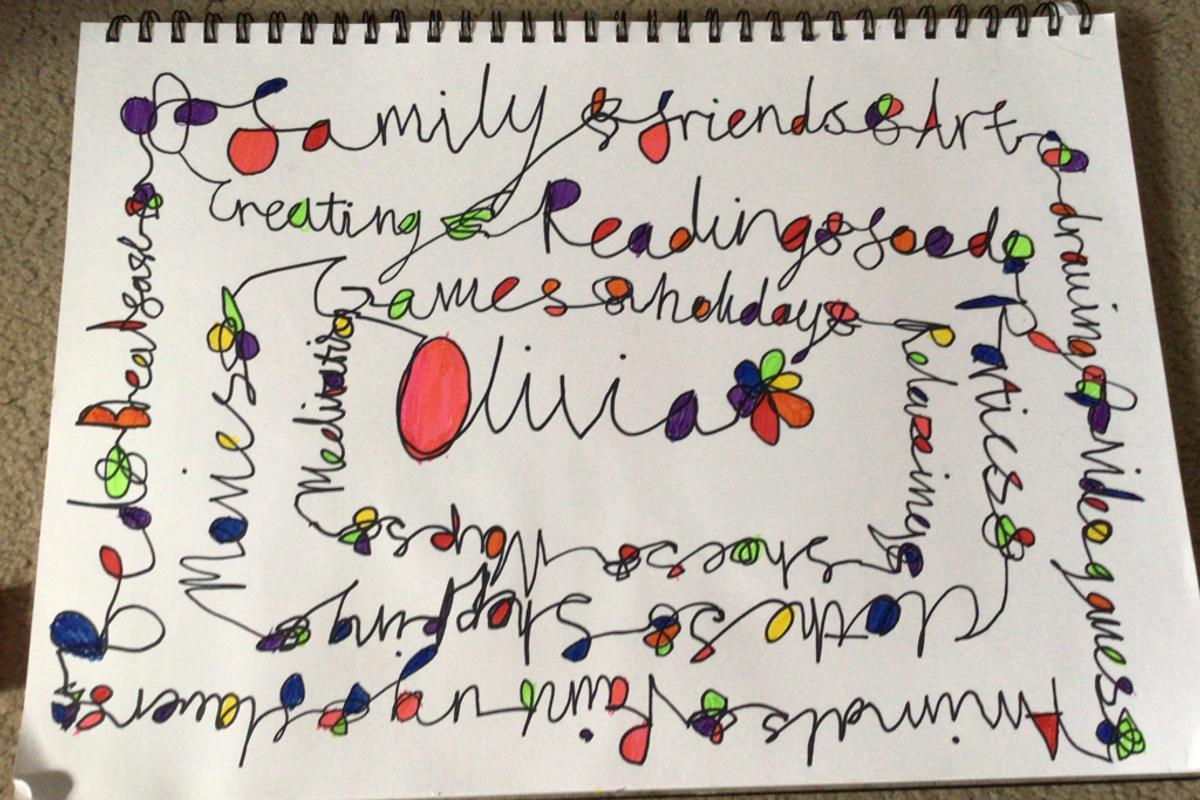 Family & friends & Art &
drawing &
Video games &
Animals &
Painting &
flowers &
Bed & Breakfast &
Creating & Reading & food &
Parties &
clothes & Shopping &
Movies &
Games & holidays &
Relaxing &
shoes &
Meditation
Olivia